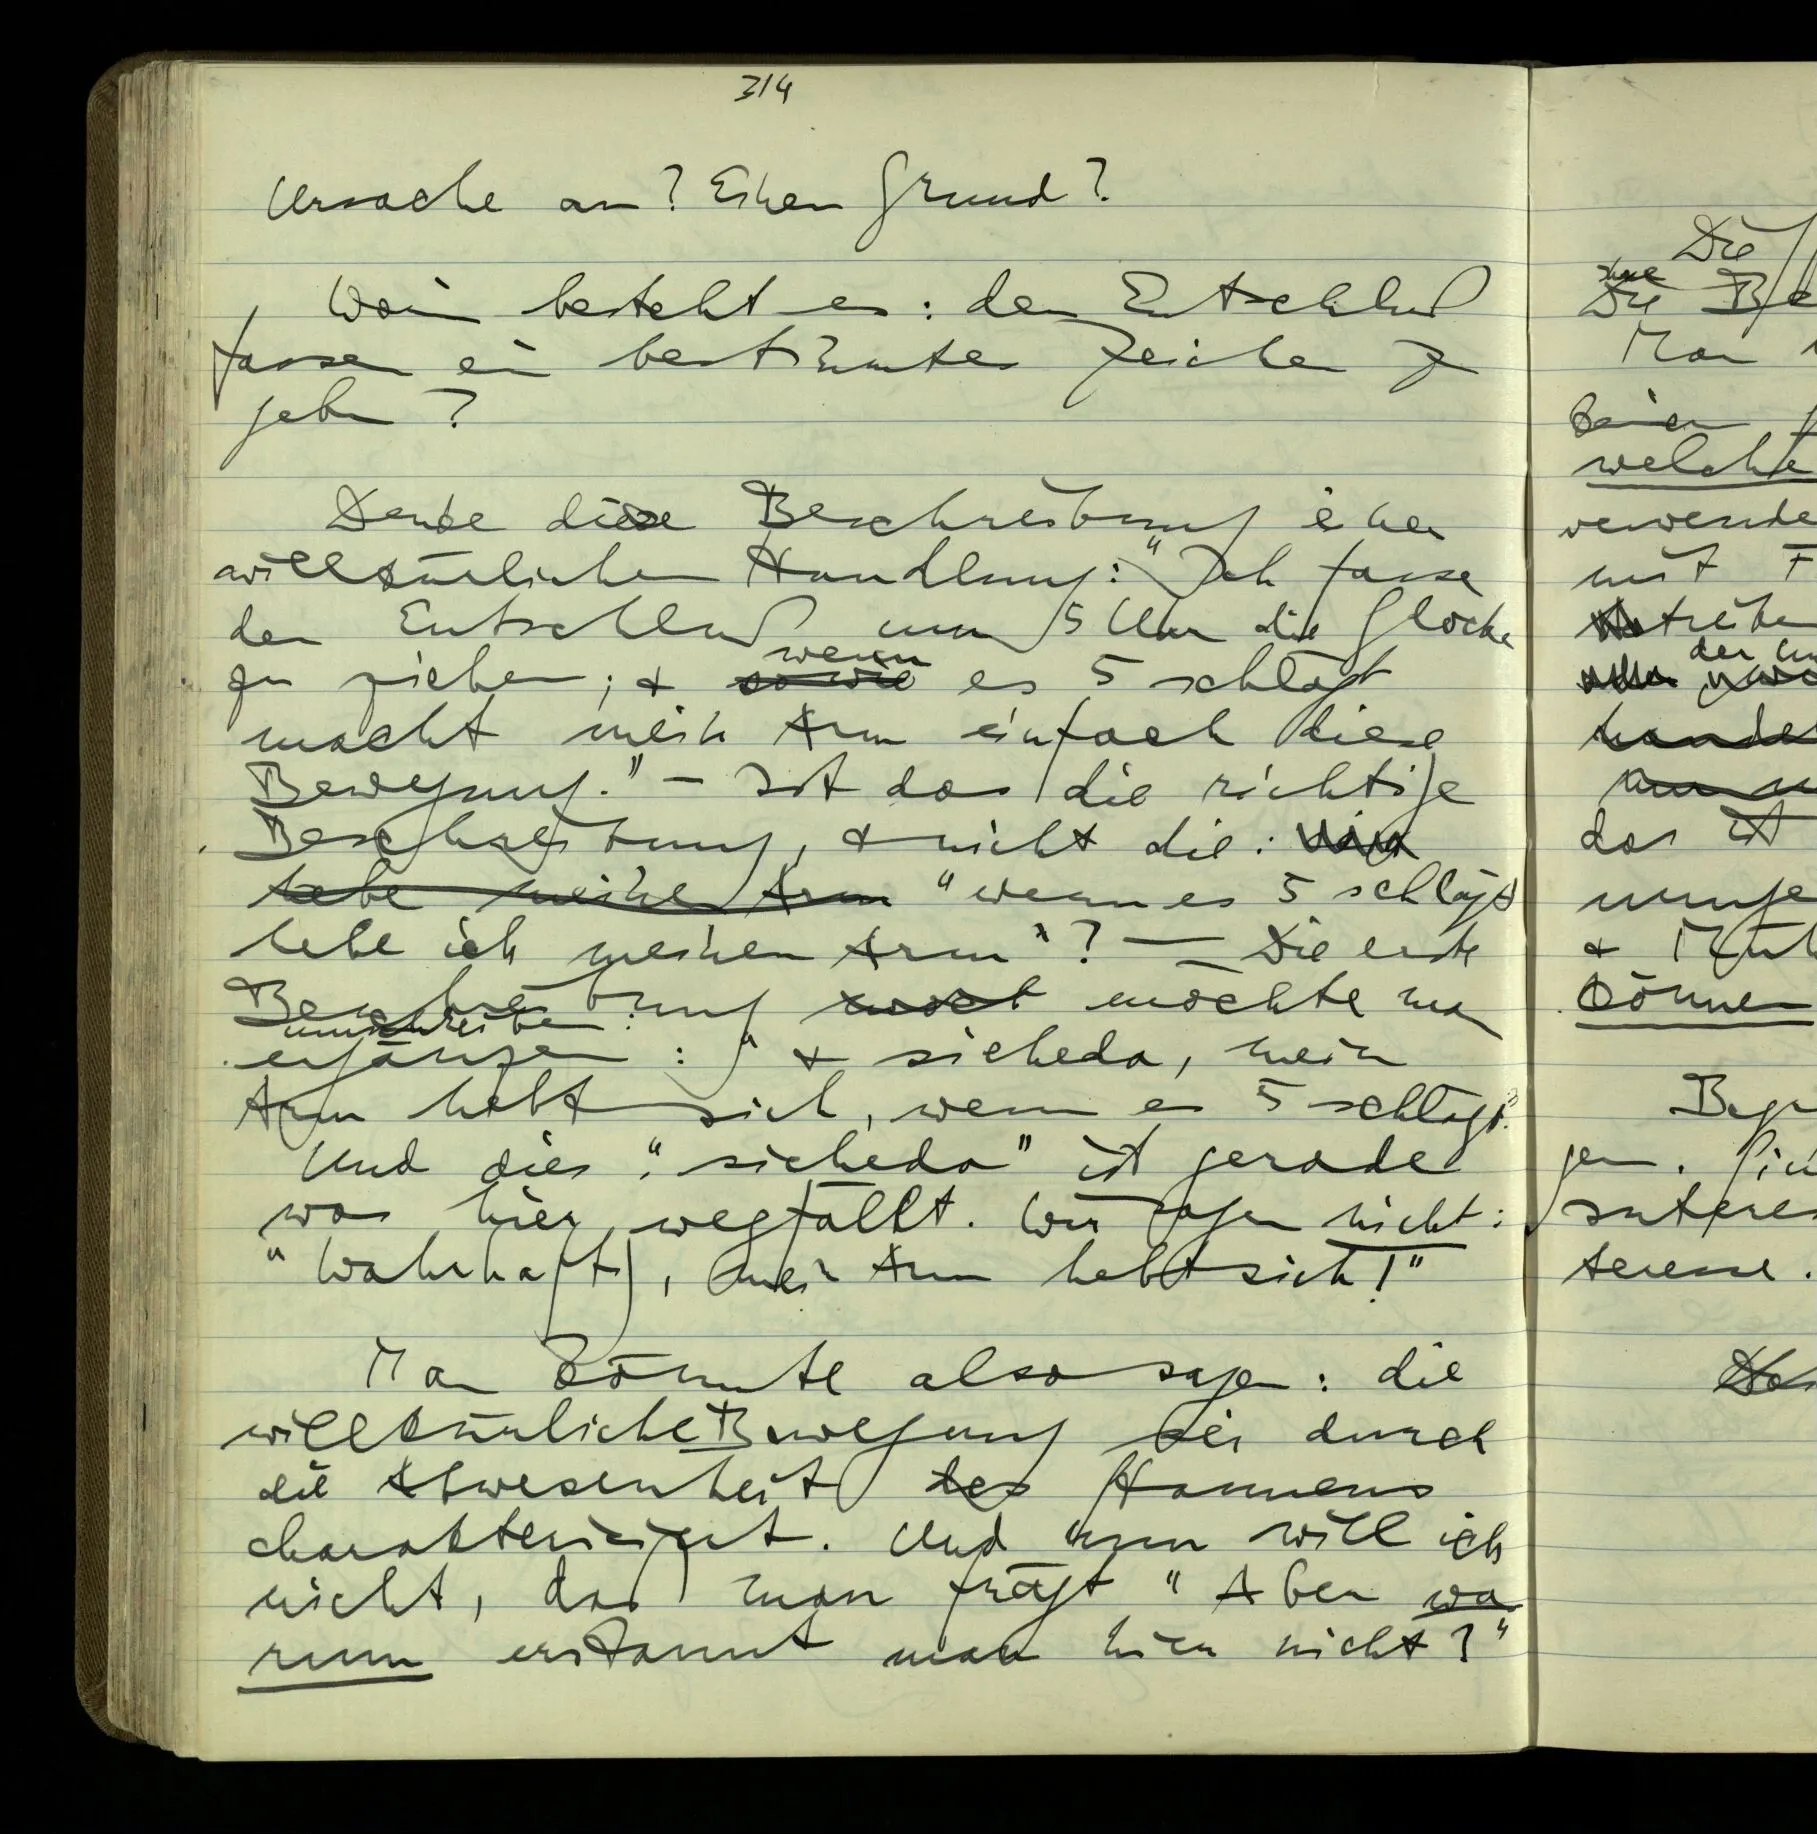 314
Ursache an? Einen Grund?
Worin besteht es: den Entschluß
fassen ein bestimmtes Zeichen zu
geben?
Denke diese Beschreibung einer
willkürlichen Handlung: "Ich fasse
den Entschluß um 5 Uhr die Glocke
wenn
zu ziehen; & sowie es 5 schlägt
macht mein Arm einfach diese
Bewegung." – Ist das die richtige
Beschreibung, & nicht die:
hebe meinen Arm "wenn es 5 schlägt
hebe ich meinen Arm"? — Die erste
Beschreibung möchte man
umschreiben:
ergänzen: " & siehe da, mein
Arm hebt sich, wenn es 5 schlägt."
Und dies "siehe da" ist gerade
was hier wegfällt. Wir sagen nicht:
"Wahrhaftig, mein Arm hebt sich!"
Man könnte also sagen: die
willkürliche Bewegung sei durch
die Abwesenheit des Staunens
charakterisiert. Und nun will ich
nicht, daß man frägt "Aber wa
rum erstaunt man hier nicht?"
Die
Die
Man
keinen
welche
verwende
mit
treiben
der
das ist
&
können
gen.
interes
teresse.